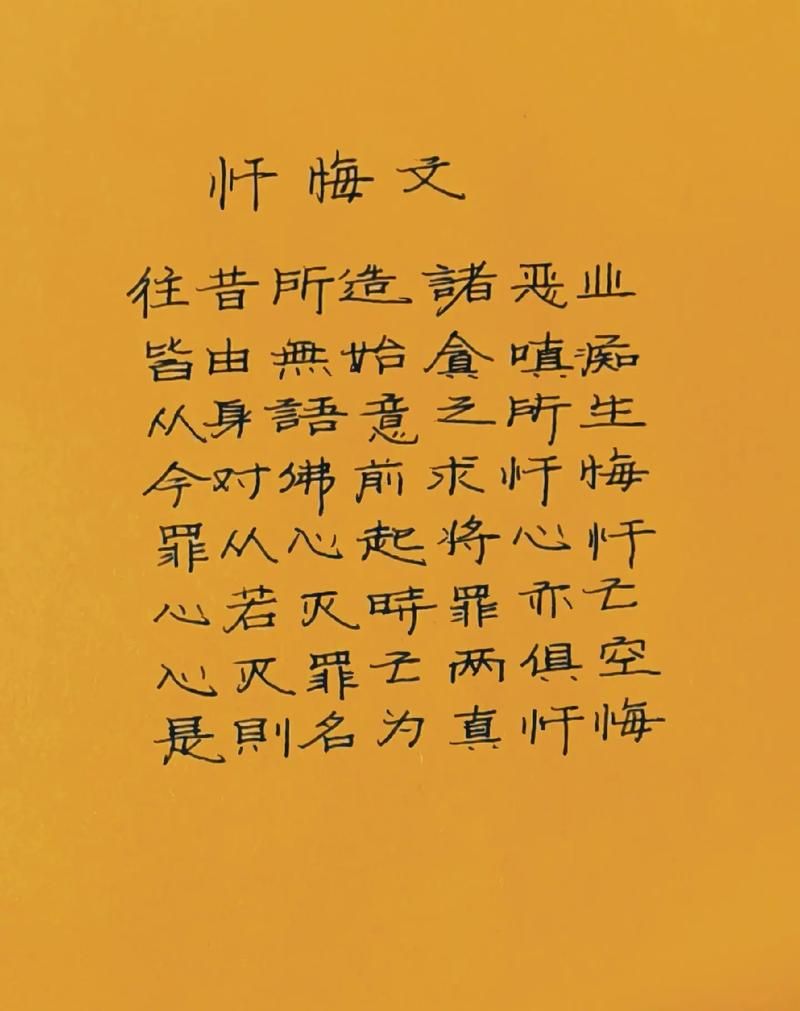 忏悔文
往昔所造諸恶业
皆由無始貪嗔痴
从身語意之所生
今对佛前求忏悔
罪从心起将心忏
心若灭時罪亦亡
心灭罪亡两俱空
是則名为真忏悔